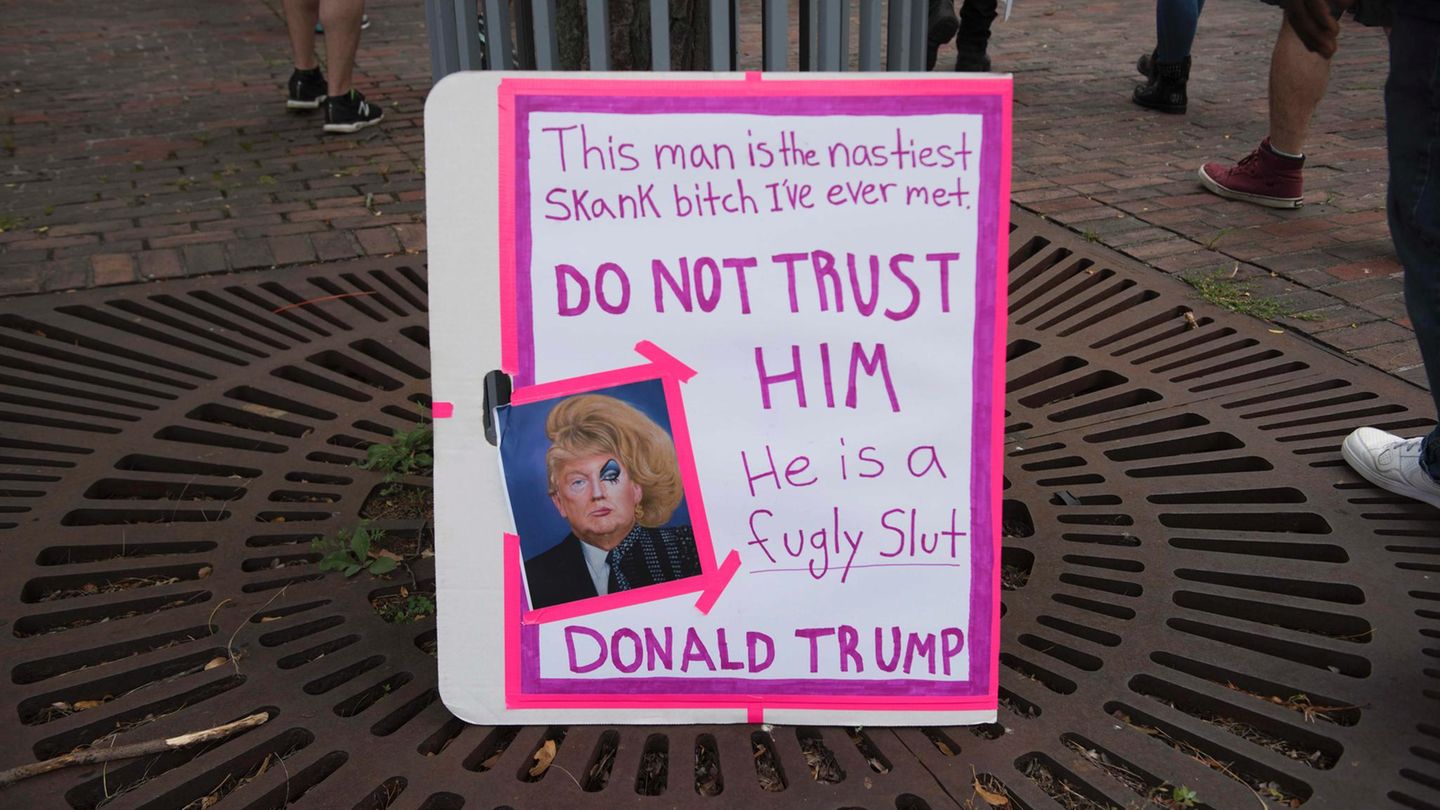 This man is the nastiest
skank bitch I've ever met.
DO NOT TRUST
HIM
He is a
fugly Slut
DONALD TRUMP